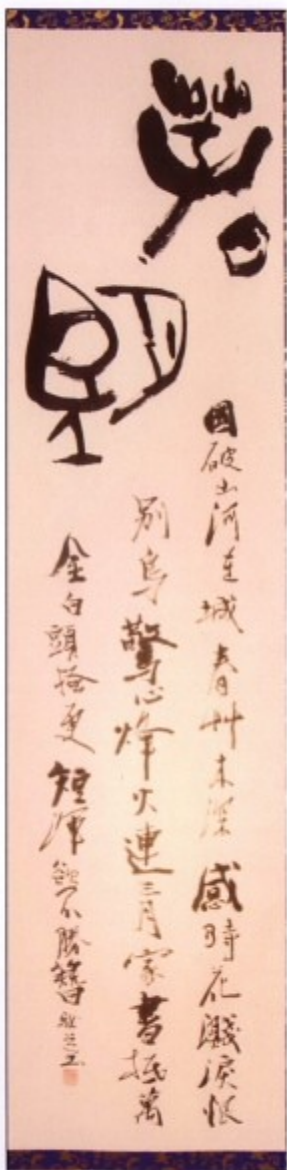 春望
國破山河在城春艸木深感時花濺淚恨
別鳥驚心烽火連三月家書抵萬
金白頭搔更短渾欲不勝簪